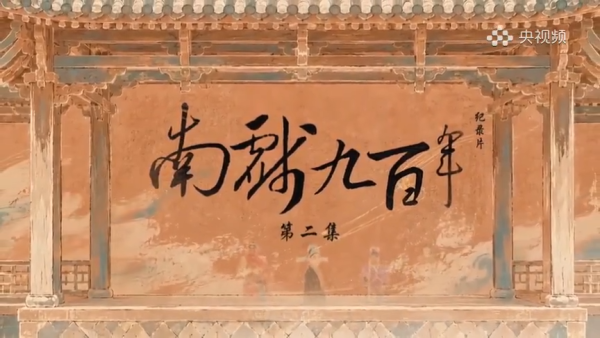 央视频
南戏九百年
纪录片
第二集